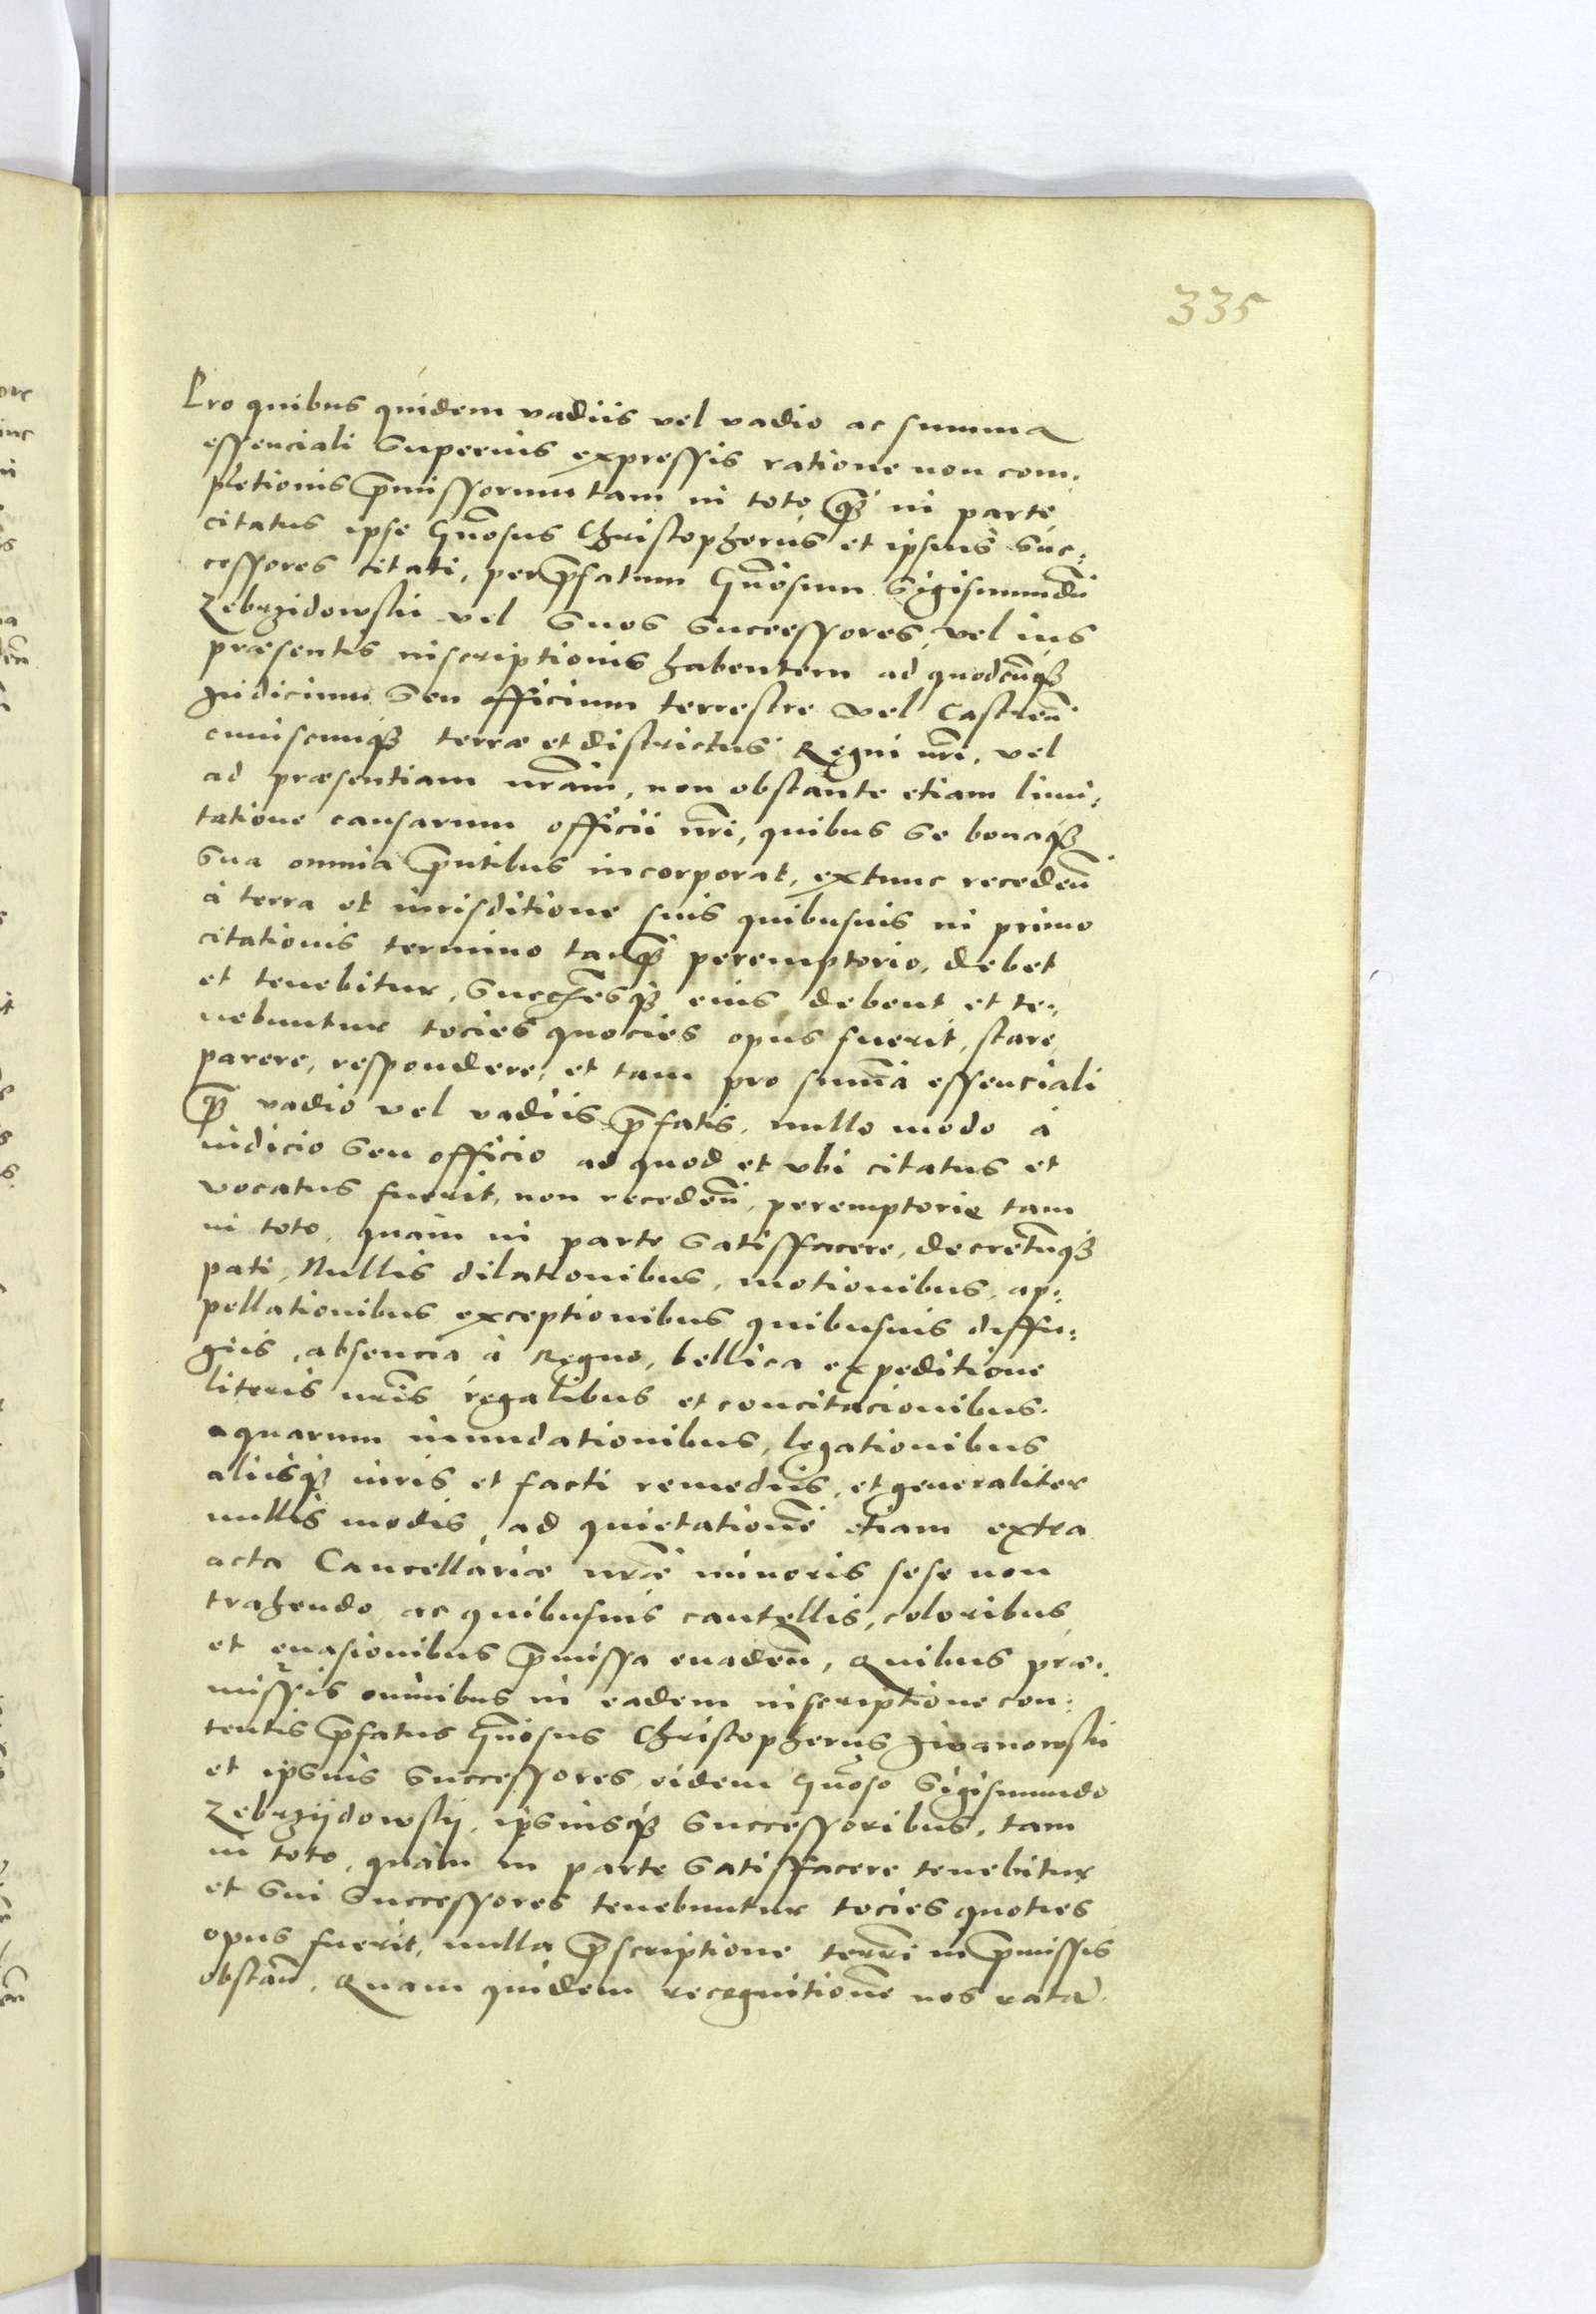 335
Pro quibus quidem vadiis vel vadio ac summa
essenciali superius expressis ratione non com:
pletionis p̄missorum tam in toto q̄ȝ in parte
citatus ipse Gn̄osus Christopherus et ipsius suc:
cessores citati, per p̄fatum Gn̄osum Sigismundū
Zebrzidowski vel suos successores, vel ius
præsentis inscriptionis habentem ad quodcūqȝ
Iudicium seu officium terrestre vel Castren̄
cuiuscunqȝ terræ et districtus Regni nr̄i, vel
ad præsentiam nr̄am, non obstante etiam limi:
tatione causarum officii nr̄i, quibus se bonaqȝ
sua omnia p̄ntibus incorporat, extunc receden̄
à terra et iurisditione suis quibusuis in primo
citationis termino tanq̄ȝ peremptorio, debet
et tenebitur, succr̄esqȝ eius debent et te:
nebuntur tocies quocies opus fuerit, stare,
parere, respondere, et tam pro sum̄a essenciali
q̄ȝ vadio vel vadiis p̄fatis, nullo modo à
iudicio seu officio ad quod et vbi citatus et
vocatus fuerit, non receden̄, peremptorie tam
in toto, quam in parte satisffacere, decretūqȝ
pati, Nullis dilationibus, motionibus, ap:
pellationibus exceptionibus quibusuis diffu:
giis, absencia à Regno, bellica expeditione
literis nr̄is regalibus et concitacionibus.
aquarum inundationibus, legationibus
aliisqȝ iuris et facti remediis, et generaliter
nullis modis, ad quietationē etiam extra
acta Cancellariæ nr̄æ minoris sese non
trahendo ac quibusuis cautellis, coloribus,
et euasionibus p̄missa euaden̄, Quibus præ:
missis omnibus in eadem inscriptione con:
tentis p̄fatus Gn̄osus Christopherus Iwanowski
et ipsius successores eidem Gn̄oso Sigismundo
Zebrzijdowskij, ipsiusqȝ successoribus, tam
in toto, quàm in parte satisffacere tenebitur
et sui successores tenebuntur tocies quoties
opus fuerit, nulla p̄scriptione terr̄i in p̄missis
obstan̄. Quam quidem recognitionē nos ratā